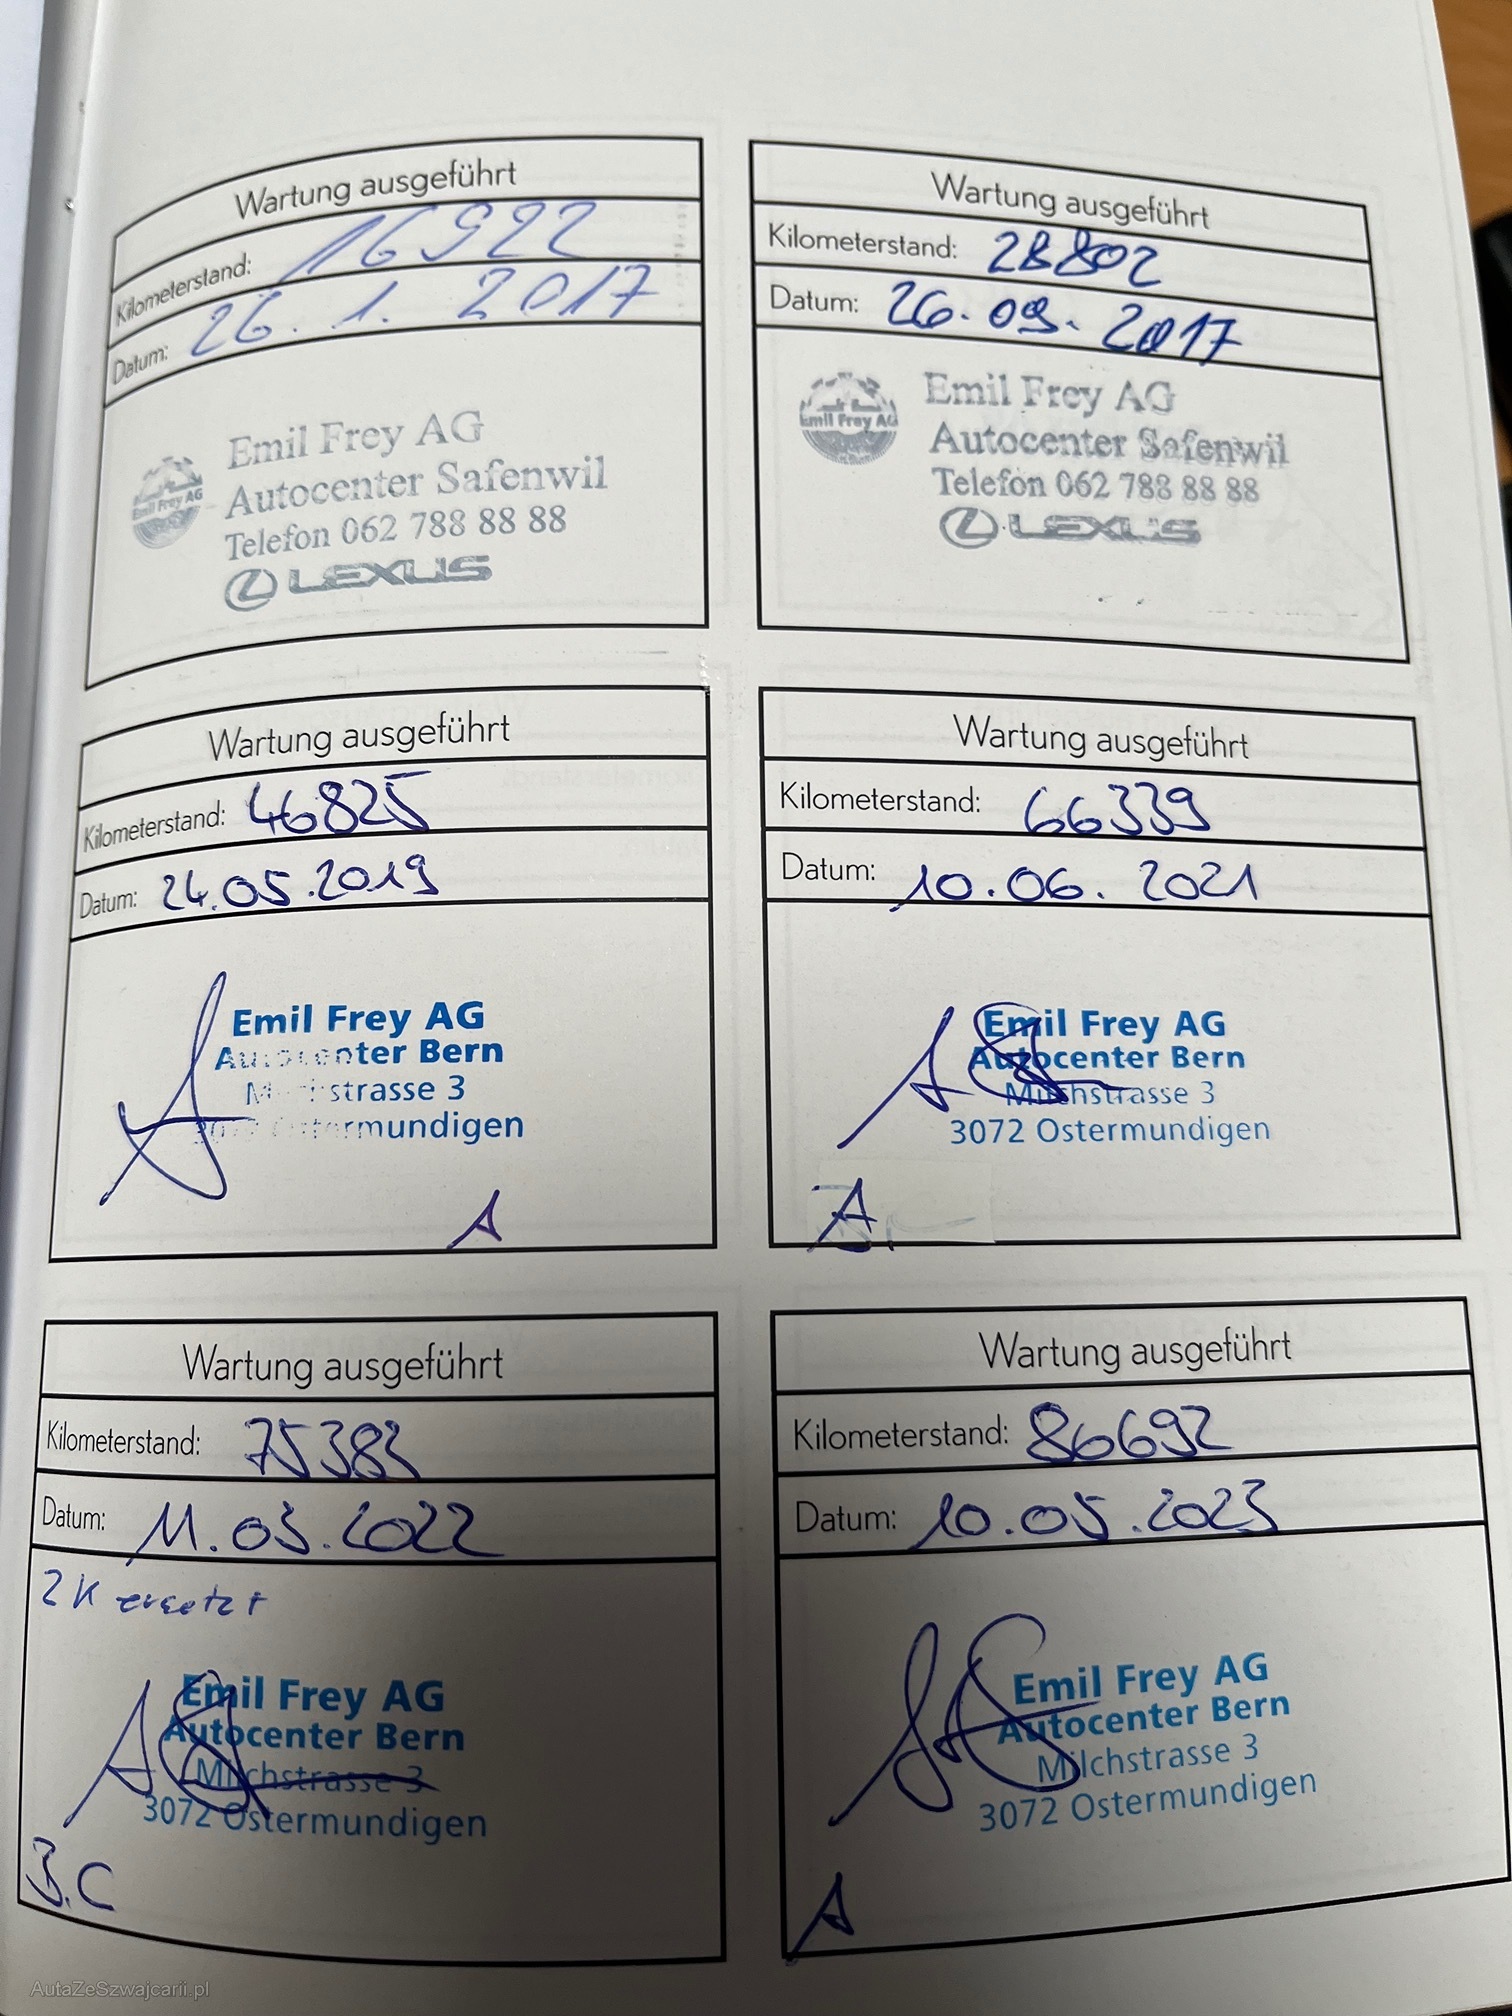 Wartung ausgeführt
Kilometerstand: 16922
Datum: 26.1.2017
Emil Frey AG
Emil Frey AG
Autocenter Safenwil
Telefon 062 788 88 88
LEXUS
Wartung ausgeführt
Kilometerstand: 28802
Datum: 26.09.2017
Emil Frey AG
Emil Frey AG
Autocenter Safenwil
Telefon 062 788 88 88
LEXUS
Wartung ausgeführt
Kilometerstand: 46825
Datum: 24.05.2019
Emil Frey AG
Autocenter Bern
Milchstrasse 3
3072 Ostermundigen
A
Wartung ausgeführt
Kilometerstand: 66339
Datum: 10.06.2021
Emil Frey AG
Autocenter Bern
Milchstrasse 3
3072 Ostermundigen
A
Wartung ausgeführt
Kilometerstand: 75383
Datum: 11.03.2022
ZK ersetzt
Emil Frey AG
Autocenter Bern
Milchstrasse 3
3072 Ostermundigen
B.C
Wartung ausgeführt
Kilometerstand: 86692
Datum: 10.05.2023
Emil Frey AG
Autocenter Bern
Milchstrasse 3
3072 Ostermundigen
A
AutaZeSzwajcarii.pl